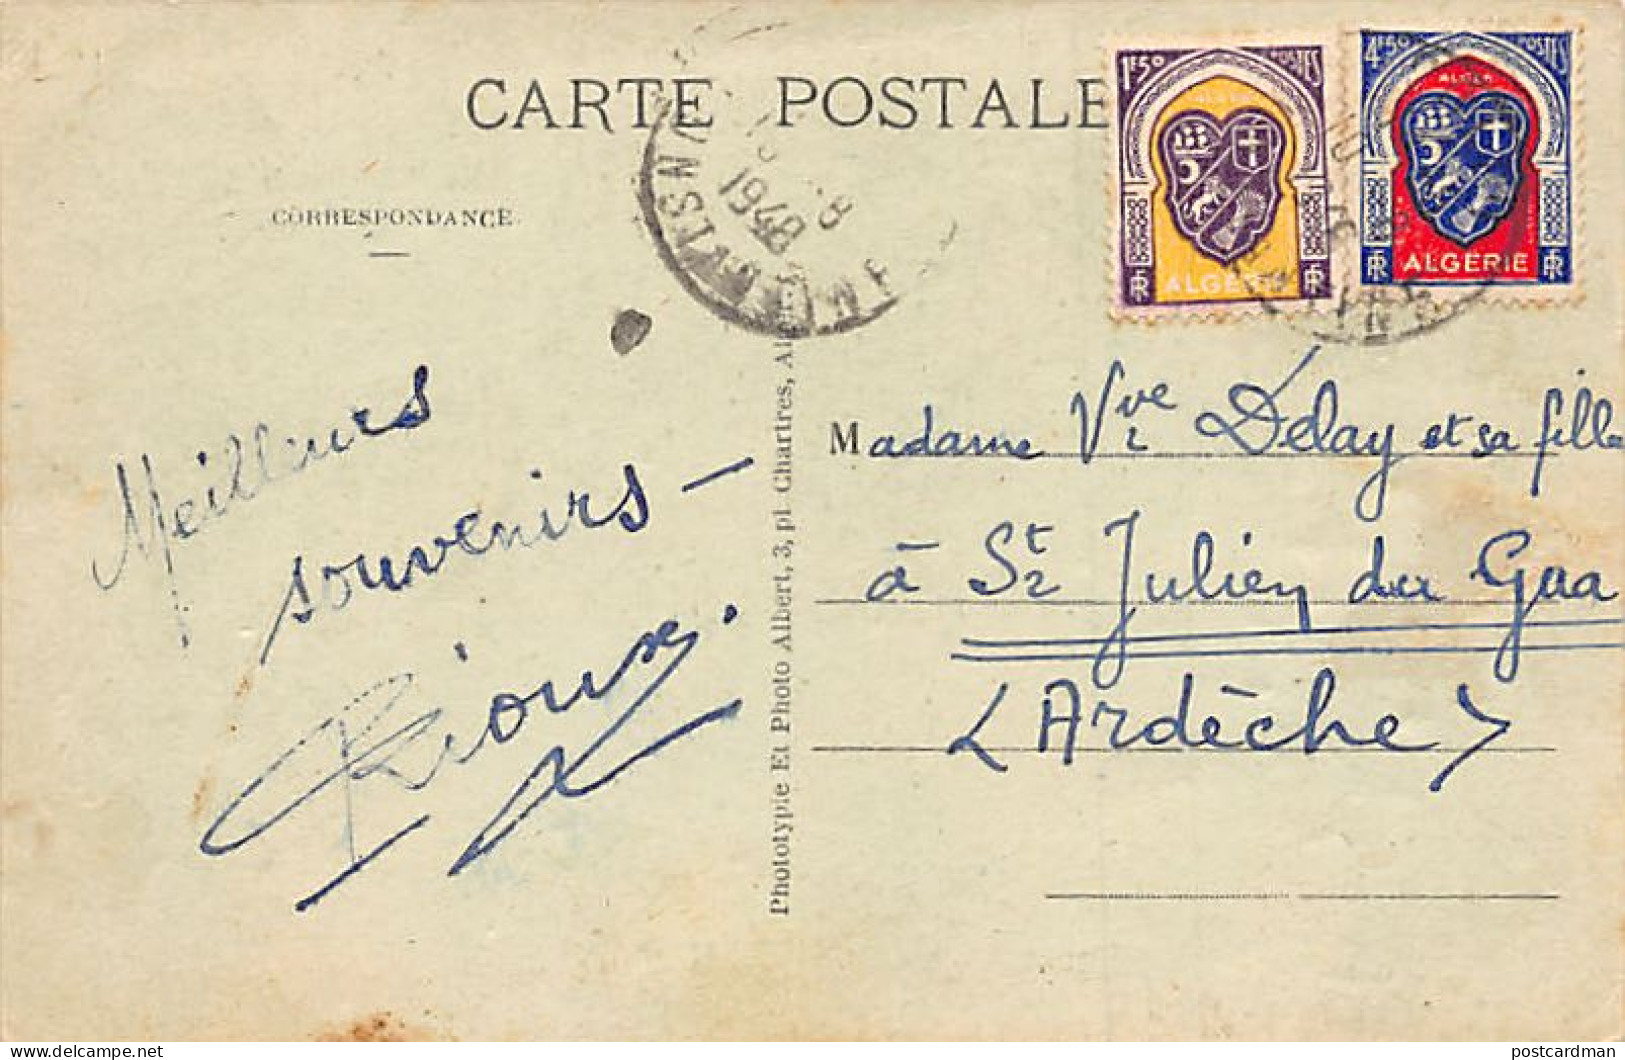 CARTE POSTALE
CORRESPONDANCE
1F50 POSTES
ALGER
RF ALGÉRIE RF
4F50 POSTES
ALGER
RF ALGÉRIE RF
1948
Meilleurs
souvenirs —
Rioux.
Phototypie Et Photo Albert, 3, pl. Chartres, Alger
Madame Vve Delay et sa fille
à St Julien du Gua
(Ardèche)
postcardman